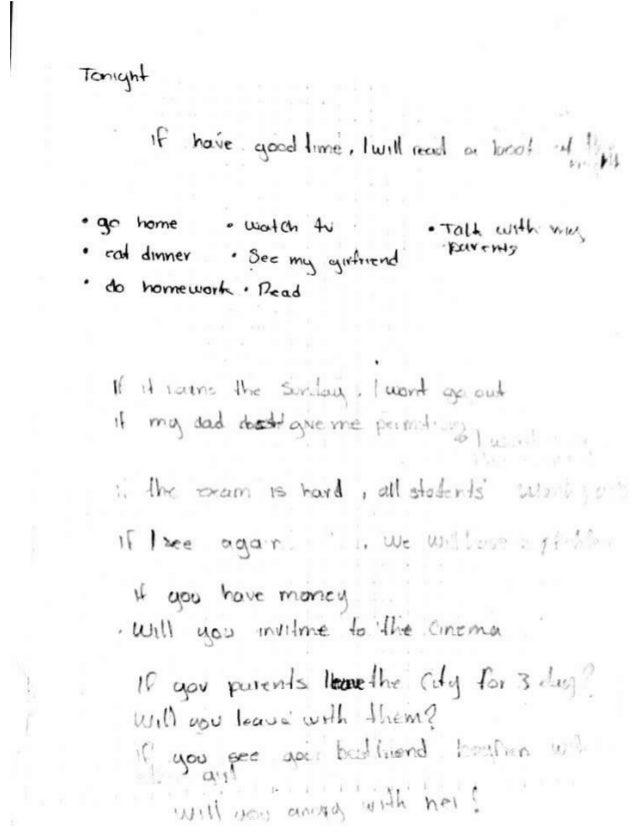 Tonight
If have good time, I will read a book
• go home • watch tv • Talk with my
parents
• eat dinner • See my girfriend
• do homework • Read
If it rains the Sunday, I wont go out
if my dad give me
the exam is hard, all students'
if I see again we will have a problem
if you have money
. Will you invitme to the cinema
If you parents leave the City for 3 day?
Will you leave with them?
If you see your bestfriend
girl
will you angry with her!